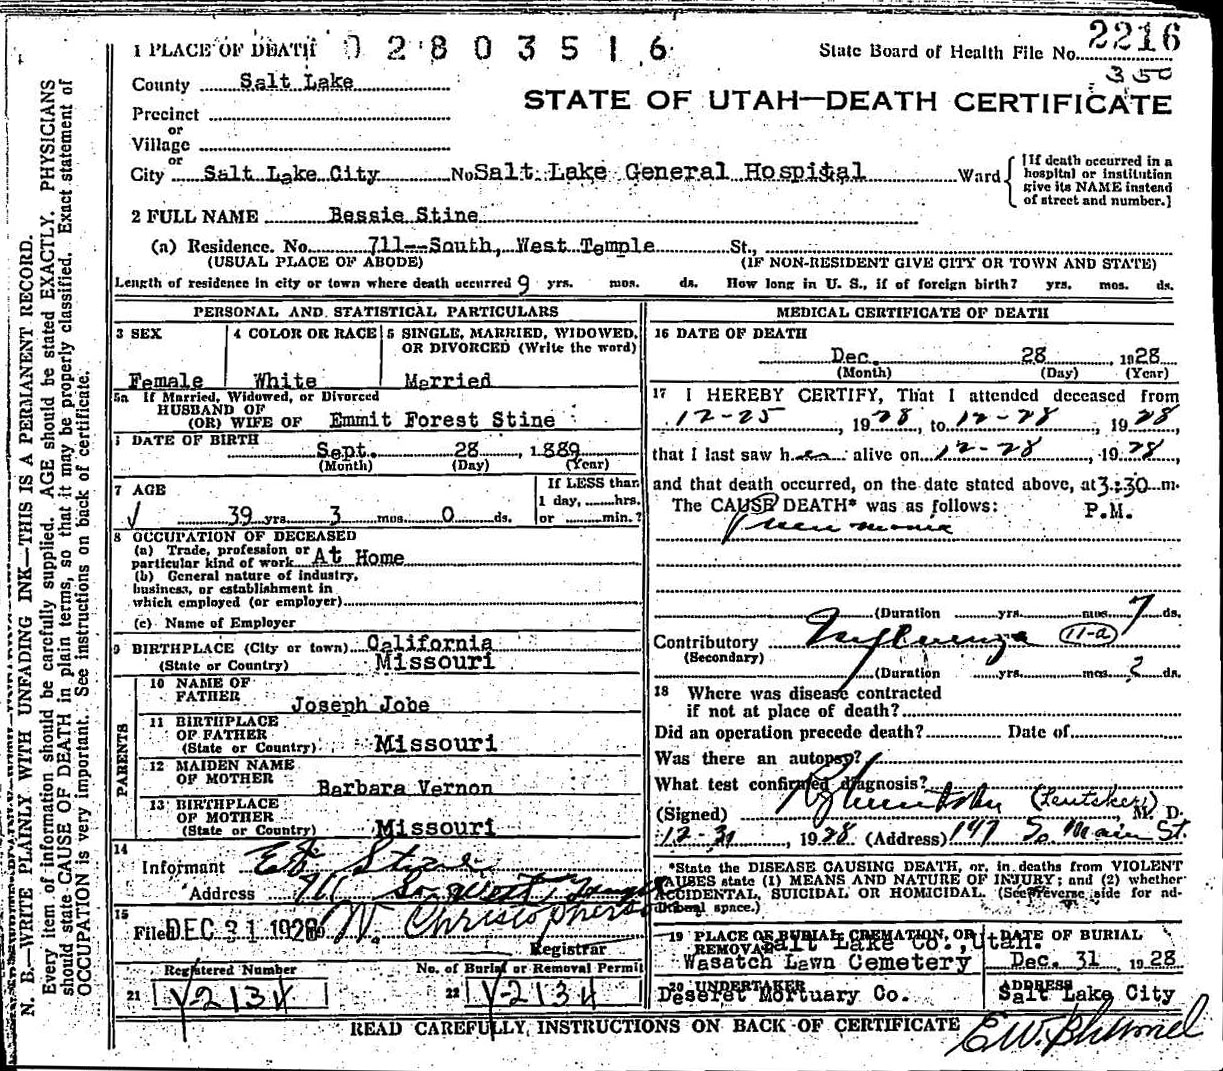 1 PLACE OF DEATH 02803516
State Board of Health File No. 2216
350
County Salt Lake
STATE OF UTAH—DEATH CERTIFICATE
Precinct
or
Village
or
City Salt Lake City No Salt Lake General Hospital Ward
[If death occurred in a
hospital or institution
give its NAME instead
of street and number.]
2 FULL NAME Bessie Stine
(a) Residence. No. 711--South, West Temple St.,
(USUAL PLACE OF ABODE) (IF NON-RESIDENT GIVE CITY OR TOWN AND STATE)
Length of residence in city or town where death occurred 9 yrs. mos. ds. How long in U. S., if of foreign birth? yrs. mos. ds.
PERSONAL AND STATISTICAL PARTICULARS
3 SEX
Female
4 COLOR OR RACE
White
5 SINGLE, MARRIED, WIDOWED,
OR DIVORCED (Write the word)
Married
5a If Married, Widowed, or Divorced
HUSBAND OF
(OR) WIFE OF Emmit Forest Stine
6 DATE OF BIRTH
Sept. 28, 1889
(Month) (Day) (Year)
7 AGE
39 yrs. 3 mos. 0 ds.
If LESS than
1 day, hrs.
or min.?
8 OCCUPATION OF DECEASED
(a) Trade, profession or
particular kind of work At Home
(b) General nature of industry,
business, or establishment in
which employed (or employer)
(c) Name of Employer
9 BIRTHPLACE (City or town) California
(State or Country) Missouri
PARENTS
10 NAME OF
FATHER
Joseph Jobe
11 BIRTHPLACE
OF FATHER
(State or Country) Missouri
12 MAIDEN NAME
OF MOTHER
Barbara Vernon
13 BIRTHPLACE
OF MOTHER
(State or Country) Missouri
14
Informant E F Stine
Address 711 So. West Temple
15
Filed DEC 31 1928 W. Christopherson
Registrar
Registered Number
21 Y-2134
No. of Burial or Removal Permit
22 Y-2134
MEDICAL CERTIFICATE OF DEATH
16 DATE OF DEATH
Dec. 28, 1928
(Month) (Day) (Year)
17 I HEREBY CERTIFY, That I attended deceased from
12-25, 1928, to 12-28, 1928,
that I last saw her alive on 12-28, 1928
and that death occurred, on the date stated above, at 3:30 m.
The CAUSE DEATH* was as follows: P.M.
Pneumonia
(Duration yrs. mos. 7 ds.
Contributory Influenza 11-a
(Secondary)
(Duration yrs. mos. 2 ds.
18 Where was disease contracted
if not at place of death?
Did an operation precede death? Date of
Was there an autopsy?
What test confirmed diagnosis?
(Signed) M. D.
12-31, 1928 (Address) 147 So Main St.
*State the DISEASE CAUSING DEATH, or, in deaths from VIOLENT
CAUSES state (1) MEANS AND NATURE OF INJURY; and (2) whether
ACCIDENTAL, SUICIDAL OR HOMICIDAL. (See reverse side for ad-
ditional space.)
19 PLACE OF BURIAL CREMATION, OR
REMOVAL Salt Lake Co., Utah.
Wasatch Lawn Cemetery
DATE OF BURIAL
Dec. 31 1928
20 UNDERTAKER
Deseret Mortuary Co.
ADDRESS
Salt Lake City
READ CAREFULLY, INSTRUCTIONS ON BACK OF CERTIFICATE
N. B.—WRITE PLAINLY WITH UNFADING INK—THIS IS A PERMANENT RECORD.
Every item of information should be carefully supplied. AGE should be stated EXACTLY. PHYSICIANS
should state CAUSE OF DEATH in plain terms, so that it may be properly classified. Exact statement of
OCCUPATION is very important. See instructions on back of certificate.